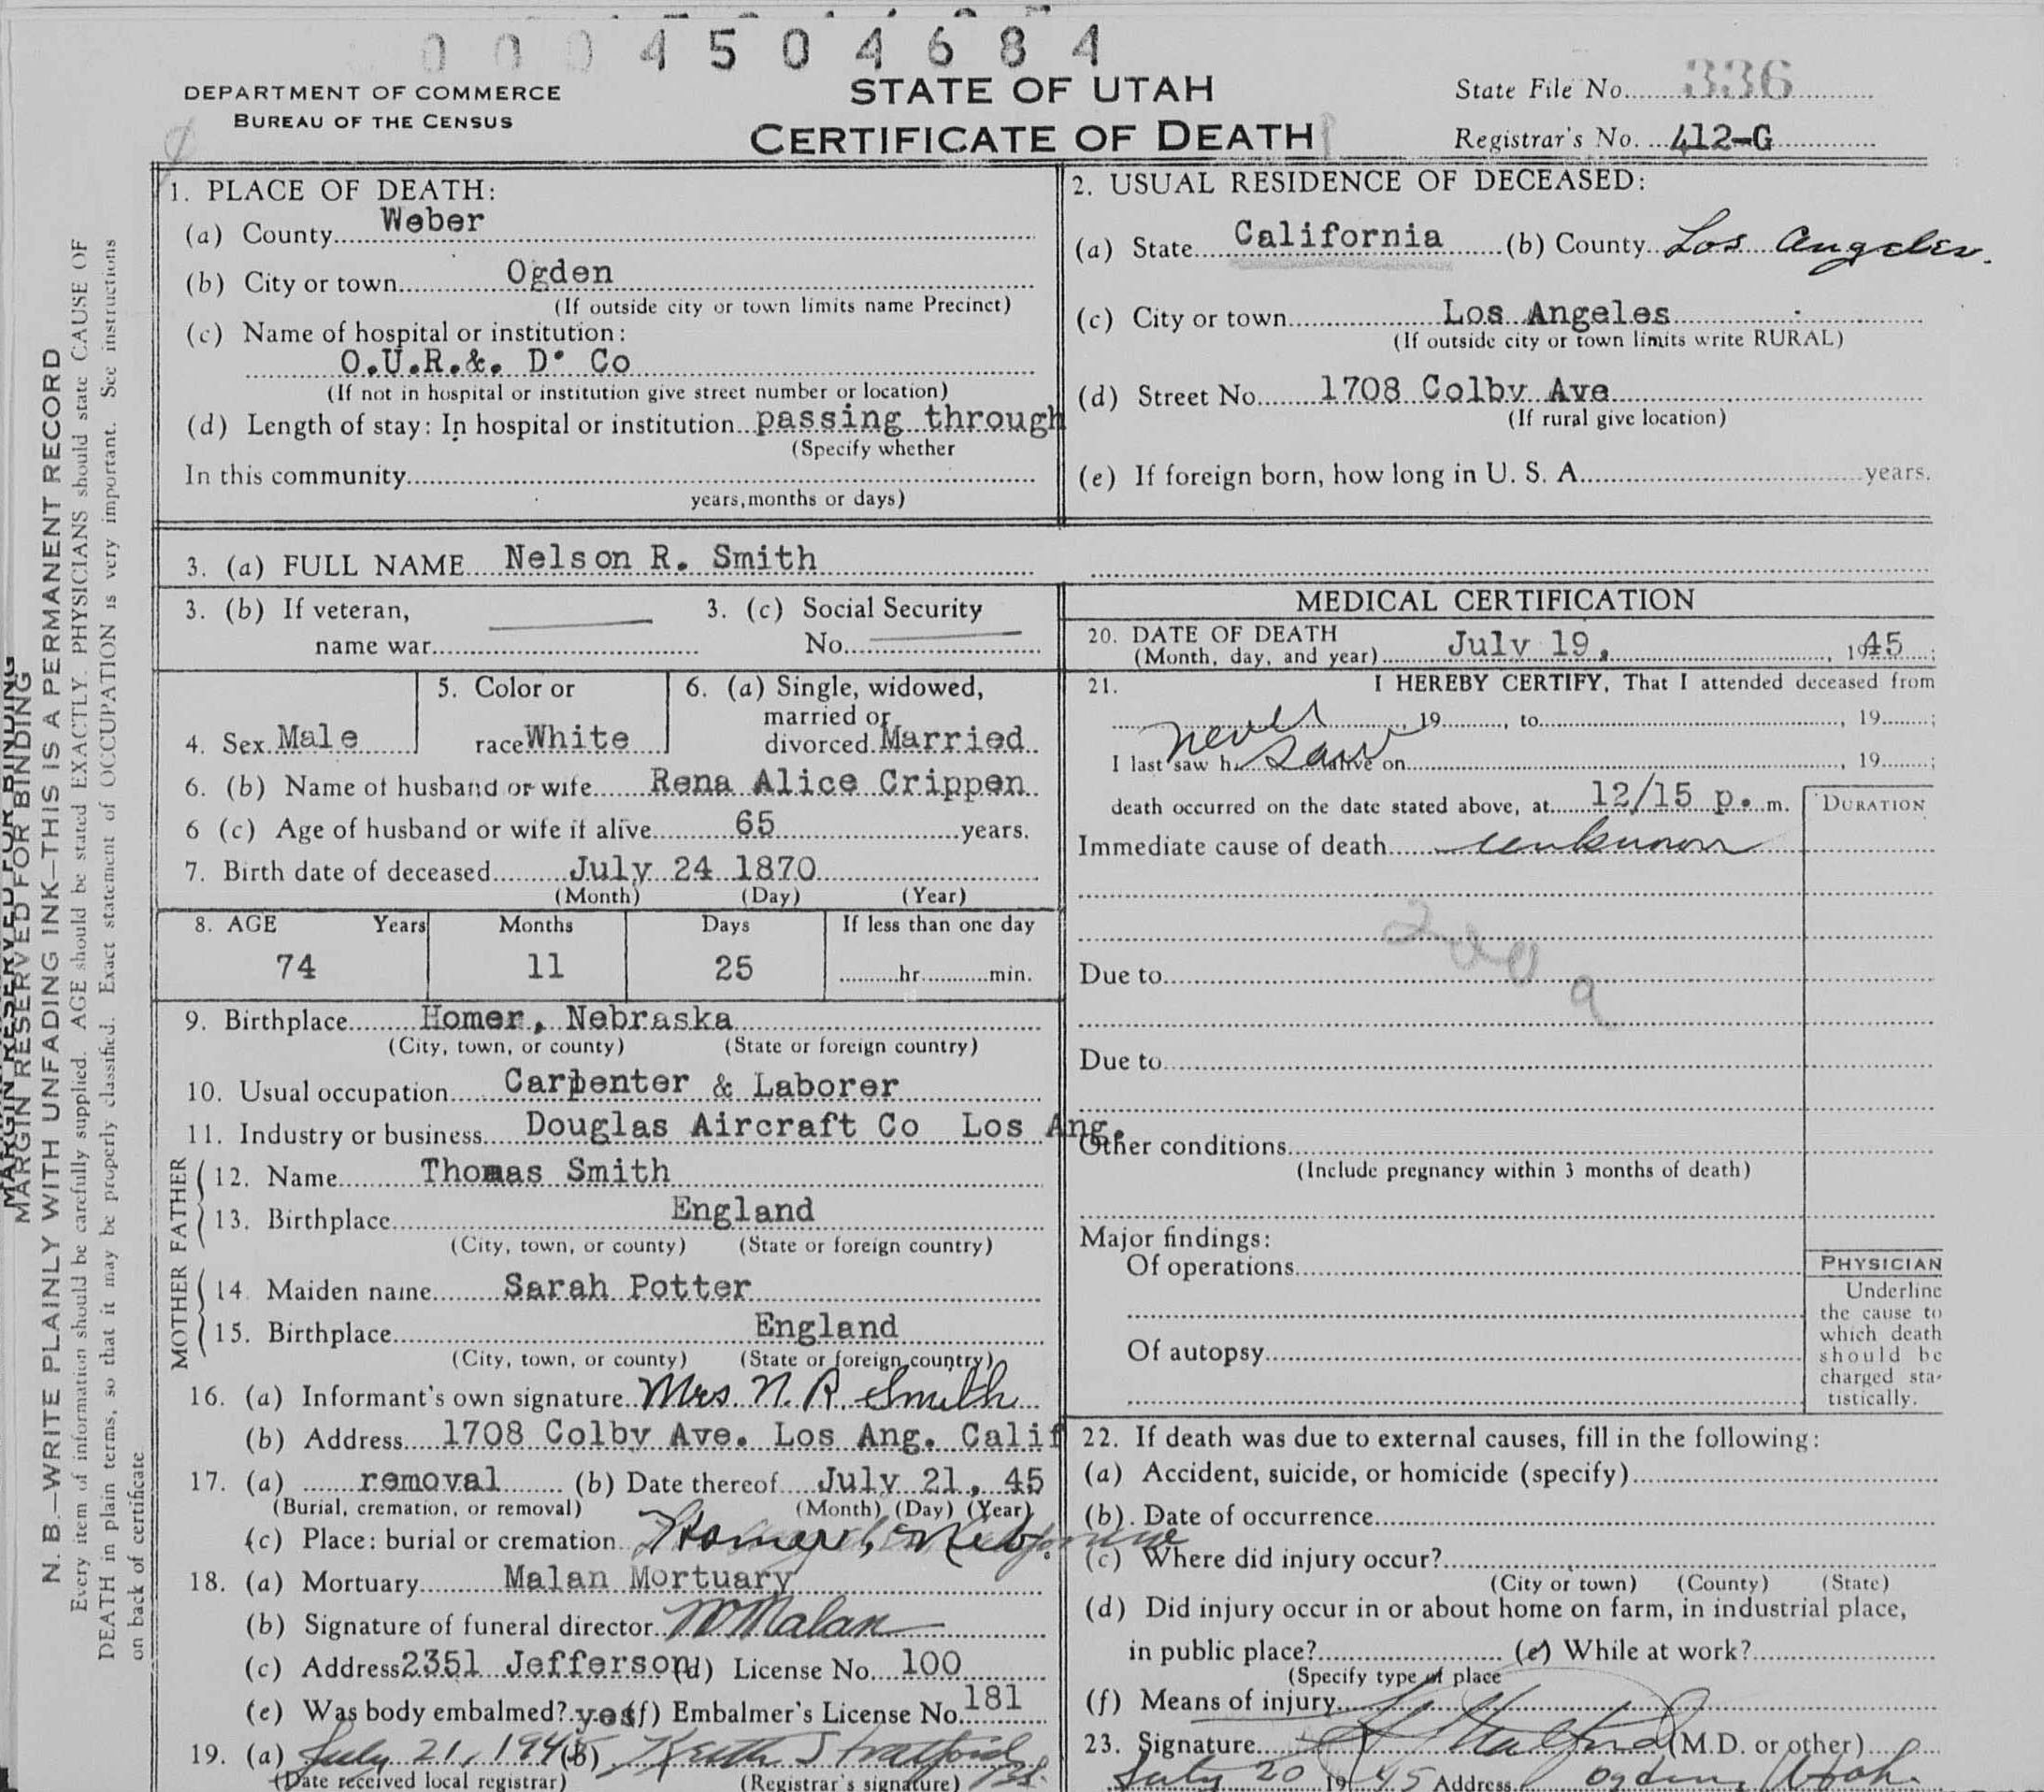 0 0 0 4 5 0 4 6 8 4
DEPARTMENT OF COMMERCE
BUREAU OF THE CENSUS
STATE OF UTAH
CERTIFICATE OF DEATH
State File No. 336
Registrar's No. 412-G
MARGIN RESERVED FOR BINDING
N. B.—WRITE PLAINLY WITH UNFADING INK—THIS IS A PERMANENT RECORD
Every item of information should be carefully supplied. AGE should be stated EXACTLY. PHYSICIANS should state CAUSE OF
DEATH in plain terms, so that it may be properly classified. Exact statement of OCCUPATION is very important. See instructions
on back of certificate
1. PLACE OF DEATH:
(a) County Weber
(b) City or town Ogden
(If outside city or town limits name Precinct)
(c) Name of hospital or institution:
O.U.R.&. D. Co
(If not in hospital or institution give street number or location)
(d) Length of stay: In hospital or institution passing through
(Specify whether
In this community
years, months or days)
2. USUAL RESIDENCE OF DECEASED:
(a) State California (b) County Los Angeles.
(c) City or town Los Angeles
(If outside city or town limits write RURAL)
(d) Street No. 1708 Colby Ave
(If rural give location)
(e) If foreign born, how long in U. S. A. years.
3. (a) FULL NAME Nelson R. Smith
3. (b) If veteran,
name war
3. (c) Social Security
No.
4. Sex Male
5. Color or
race White
6. (a) Single, widowed,
married or
divorced Married
6. (b) Name of husband or wife Rena Alice Crippen
6 (c) Age of husband or wife if alive 65 years.
7. Birth date of deceased July 24 1870
(Month) (Day) (Year)
8. AGE Years Months Days If less than one day
74 11 25 hr. min.
9. Birthplace Homer, Nebraska
(City, town, or county) (State or foreign country)
10. Usual occupation Carpenter & Laborer
11. Industry or business Douglas Aircraft Co Los Ang.
FATHER
12. Name Thomas Smith
13. Birthplace England
(City, town, or county) (State or foreign country)
MOTHER
14. Maiden name Sarah Potter
15. Birthplace England
(City, town, or county) (State or foreign country)
16. (a) Informant's own signature Mrs. N. R. Smith
(b) Address 1708 Colby Ave. Los Ang. Calif
17. (a) removal (b) Date thereof July 21, 45
(Burial, cremation, or removal) (Month) (Day) (Year)
(c) Place: burial or cremation Homer, Neb.
18. (a) Mortuary Malan Mortuary
(b) Signature of funeral director W Malan
(c) Address 2351 Jefferson (d) License No. 100
(e) Was body embalmed? yes (f) Embalmer's License No. 181
19. (a) July 21, 1945 (b) Keith Stratford
(Date received local registrar) (Registrar's signature)
MEDICAL CERTIFICATION
20. DATE OF DEATH
(Month, day, and year) July 19, 1945;
21. I HEREBY CERTIFY, That I attended deceased from
never, 19, to, 19;
I last saw h saw alive on, 19;
death occurred on the date stated above, at 12/15 p. m.
DURATION
Immediate cause of death unknown
200 a
Due to
Due to
Other conditions
(Include pregnancy within 3 months of death)
Major findings:
Of operations
Of autopsy
PHYSICIAN
Underline
the cause to
which death
should be
charged sta-
tistically.
22. If death was due to external causes, fill in the following:
(a) Accident, suicide, or homicide (specify)
(b) Date of occurrence
(c) Where did injury occur?
(City or town) (County) (State)
(d) Did injury occur in or about home on farm, in industrial place,
in public place? (e) While at work?
(Specify type of place
(f) Means of injury
23. Signature (M.D. or other)
July 20 1945 Address Ogden, Utah.